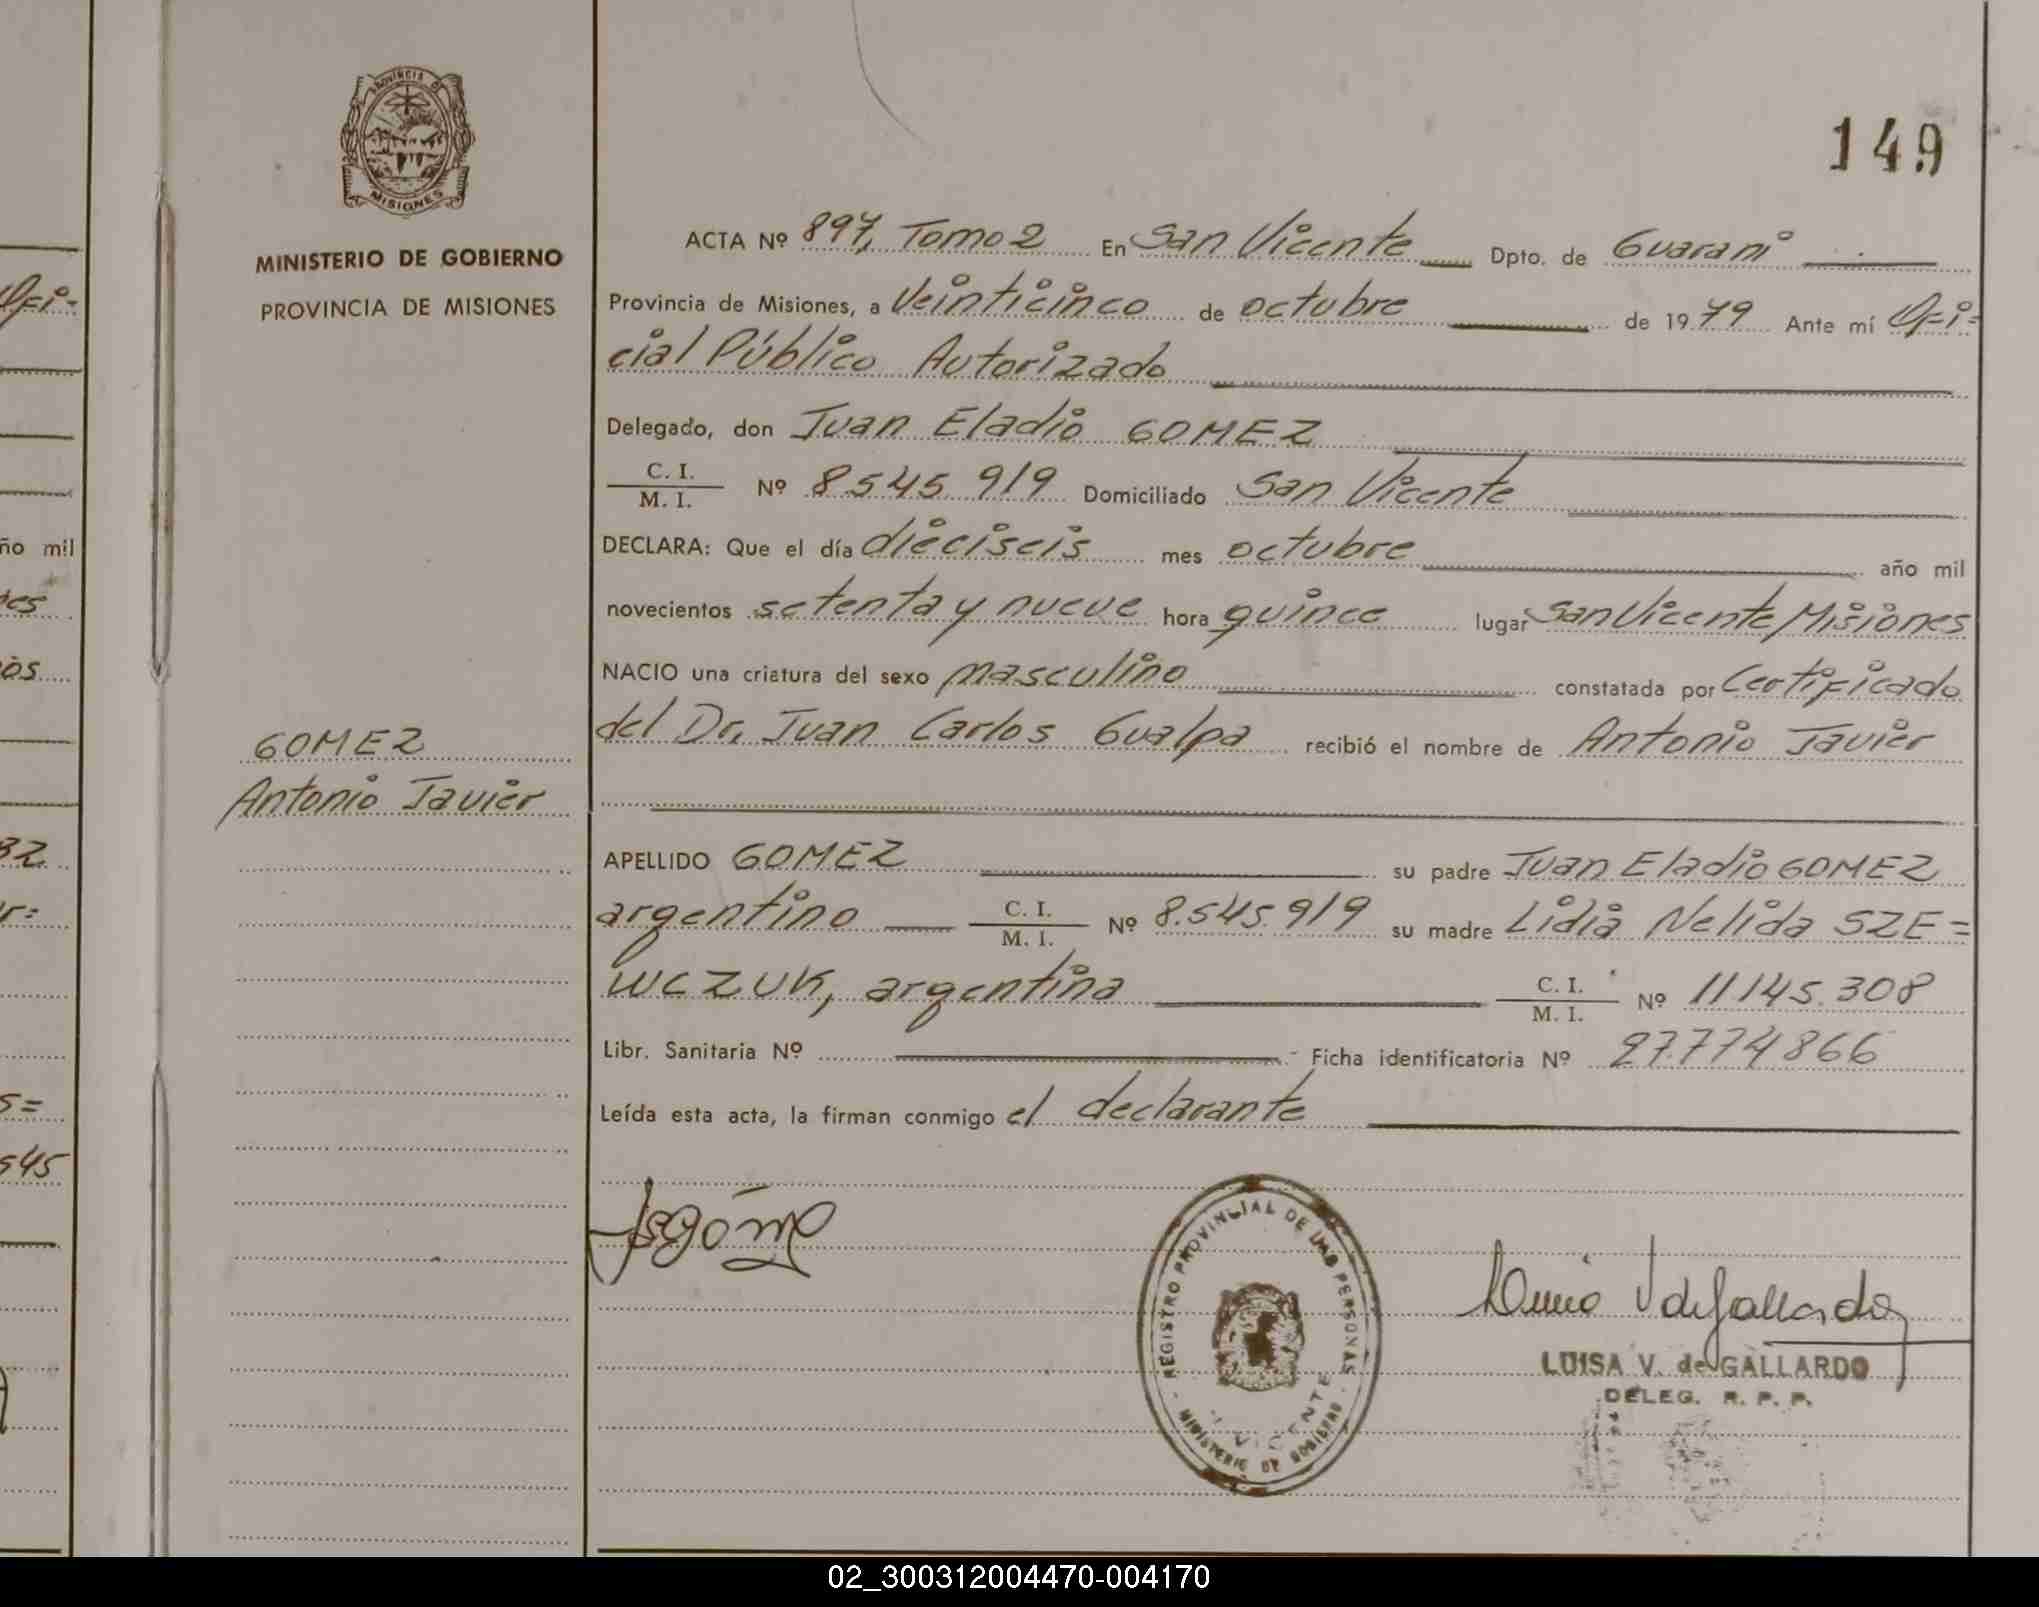 149
PROVINCIA D
MISIONES
MINISTERIO DE GOBIERNO
PROVINCIA DE MISIONES
ACTA Nº 897, Tomo 2 En San Vicente Dpto. de Guarani
Provincia de Misiones, a Veinticinco de octubre de 1979 Ante mí Ofi=
cial Público Autorizado
Delegado, don Juan Eladio GOMEZ
C. I.
M. I. Nº 8.545.919 Domiciliado San Vicente
DECLARA: Que el día dieciseis mes octubre año mil
novecientos setenta y nueve hora quince lugar San Vicente, Misiones
NACIO una criatura del sexo masculino constatada por Certificado
del Dr. Juan Carlos Gualpa recibió el nombre de Antonio Javier
GOMEZ
Antonio Javier
APELLIDO GOMEZ su padre Juan Eladio GOMEZ
argentino C. I.
M. I. Nº 8.545.919 su madre Lidia Nelida SZE=
WCZUK, argentina C. I.
M. I. Nº 11.145.308
Libr. Sanitaria Nº Ficha identificatoria Nº 27.774.866
Leída esta acta, la firman conmigo el declarante
REGISTRO PROVINCIAL DE LAS PERSONAS
VICENTE
MINISTERIO DE GOBIERNO
LUISA V. de GALLARDO
DELEG. R. P. P.
Ofi=
ño mil
os
32
r=
s=
545
02_300312004470-004170